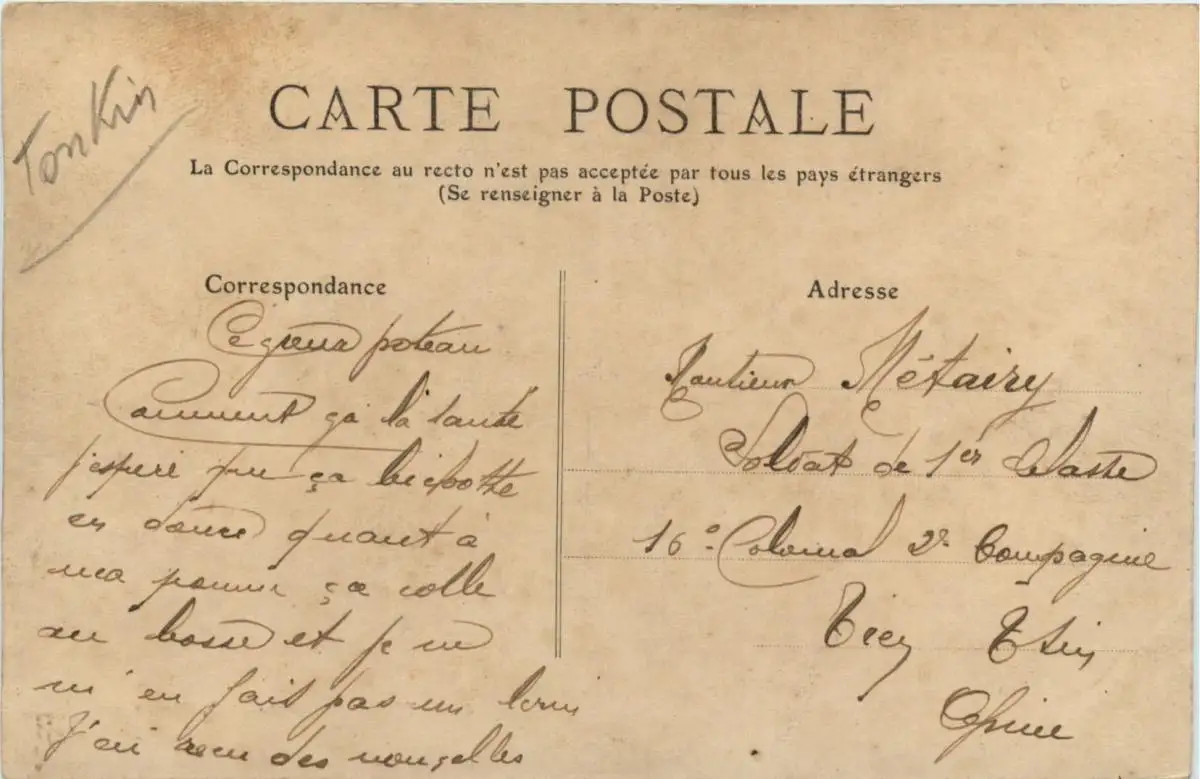 Tonkin
CARTE POSTALE
La Correspondance au recto n'est pas acceptée par tous les pays étrangers
(Se renseigner à la Poste)
Correspondance
poteau
Comment ça la santé
j'espere que ça
en douce quant à
ma pomme ça colle
au et je ne
m'en fait pas un
J'ai recu des nouvelles
Adresse
Monsieur Métairy
Soldat de 1er Classe
16e Colonial 2e Compagnie
Tien Tsin
Chine